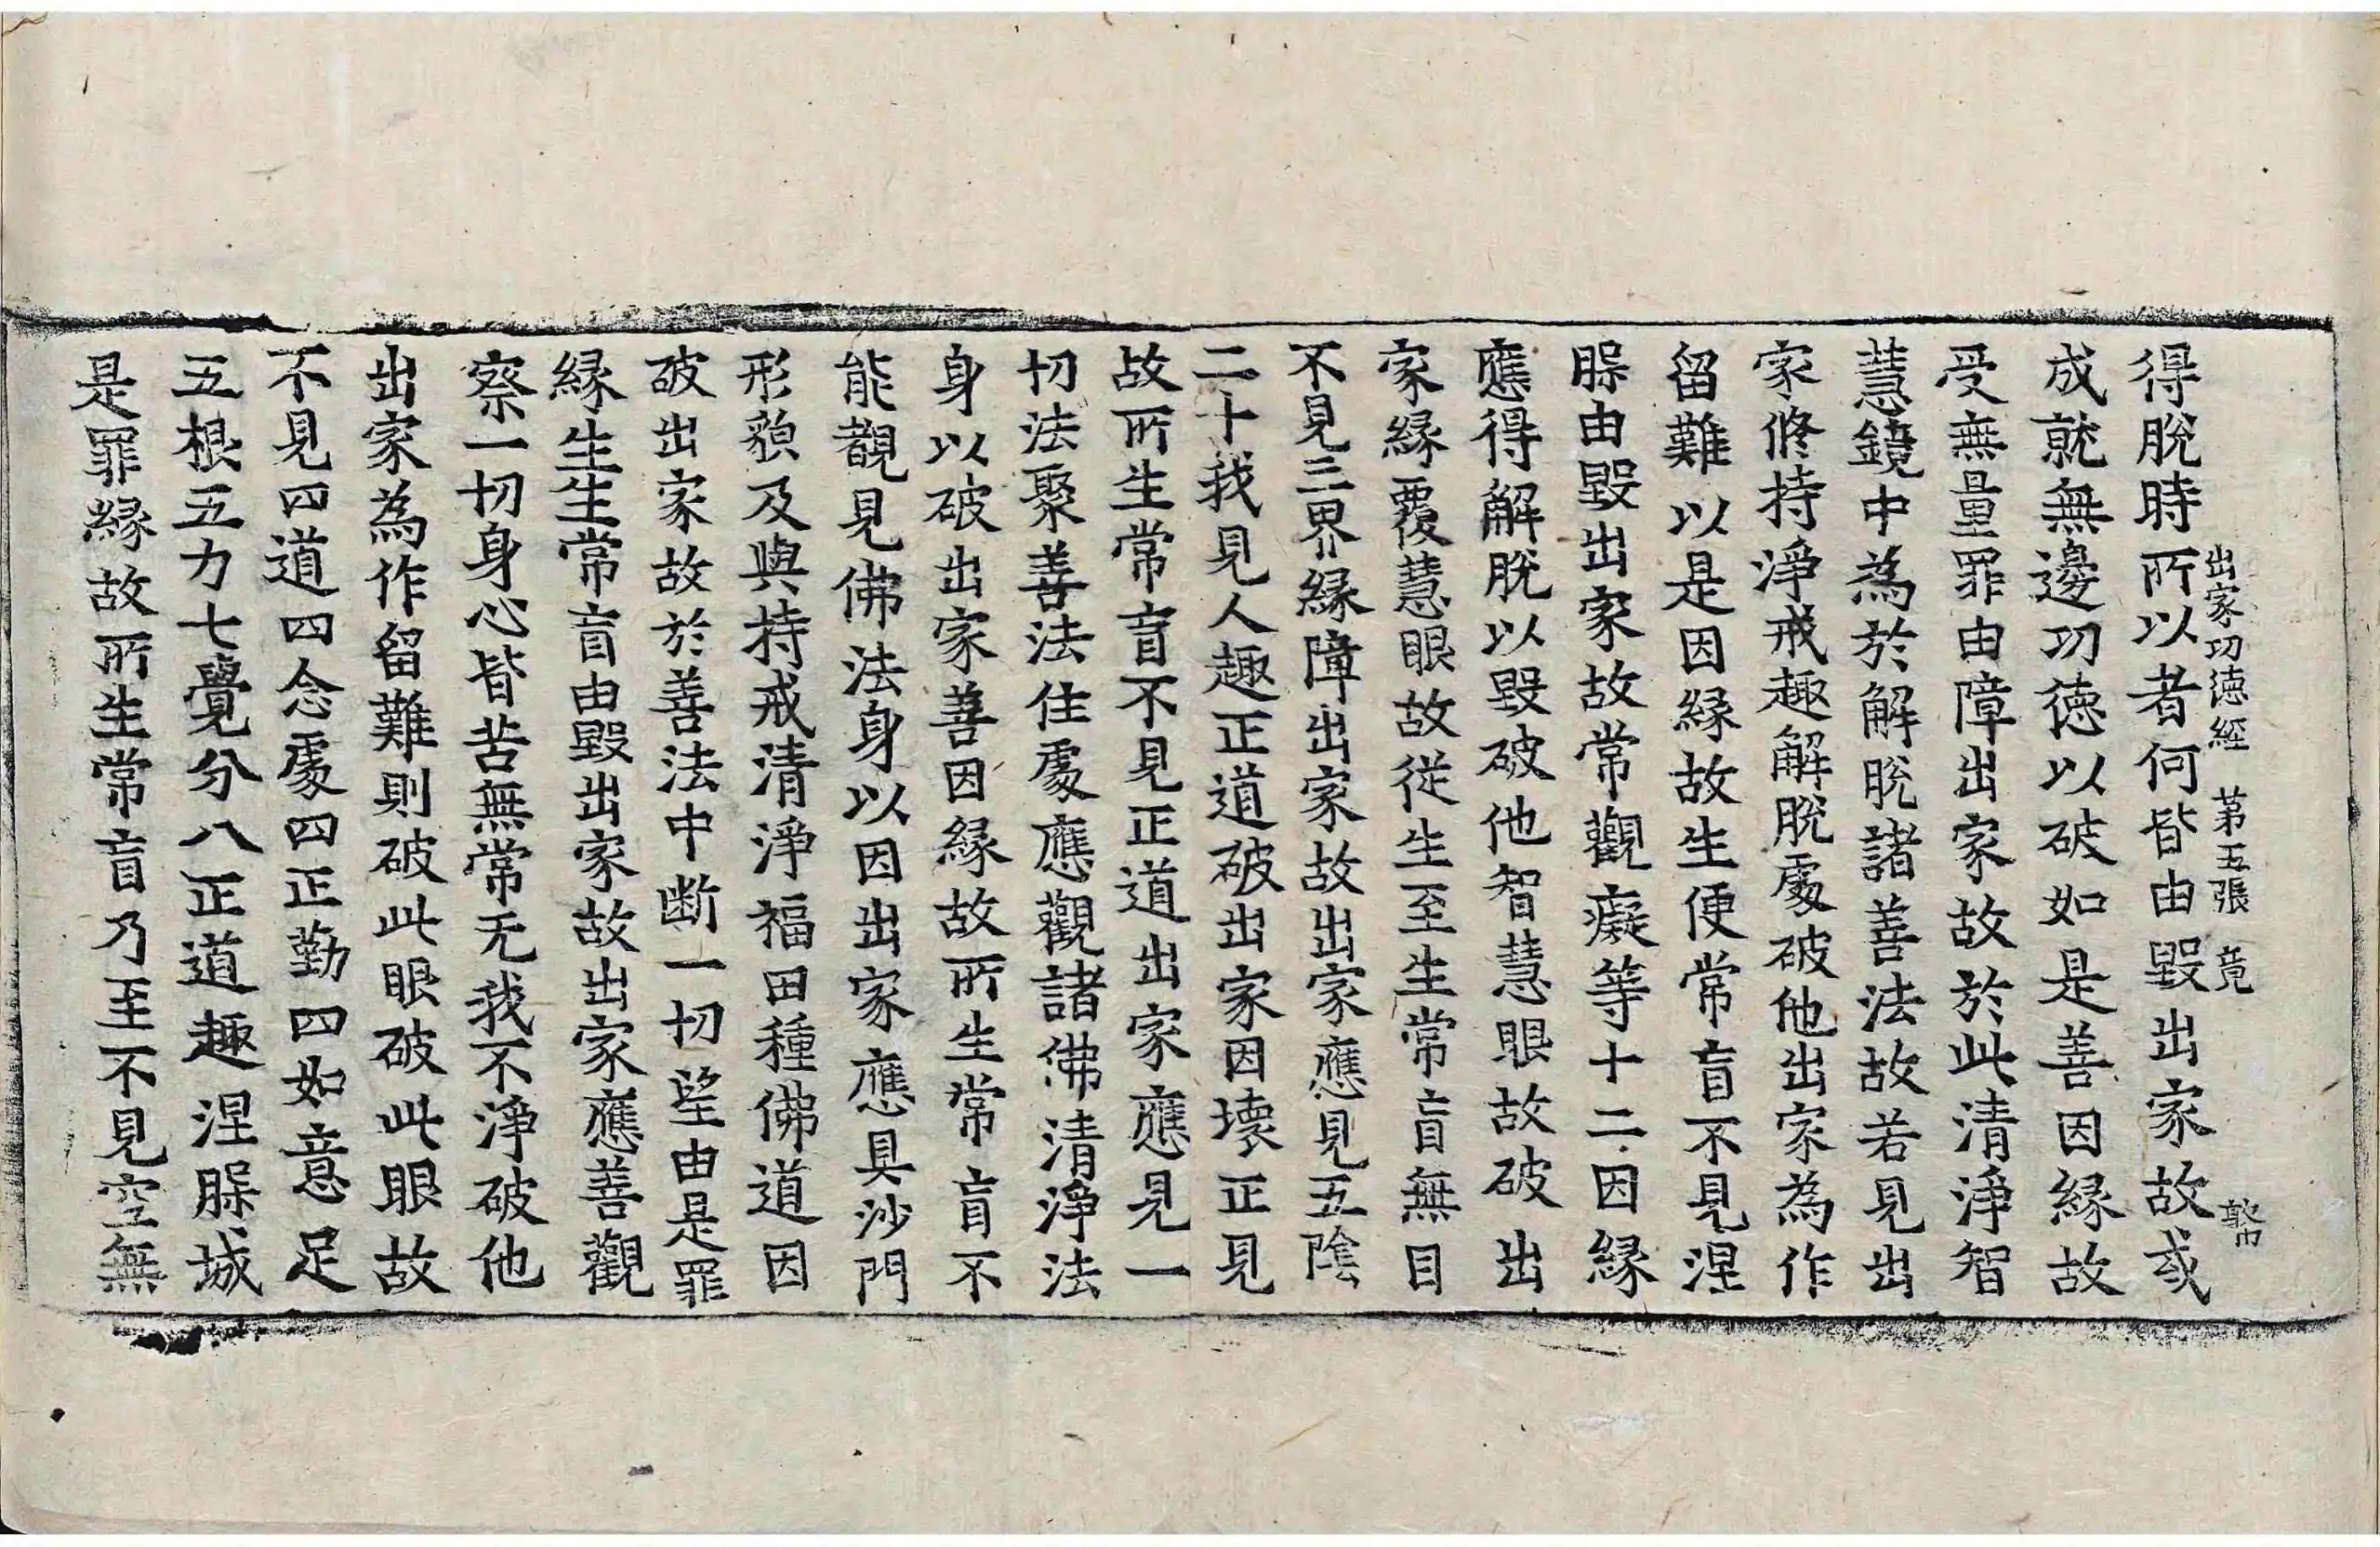 出家功徳經 第五張 竟
得脫時所以者何皆由毀出家故或
成就無邊功徳以破如是善因縁故
受無量罪由障出家故於此清淨智
慧鏡中為於解脫諸善法故若見出
家修持淨戒趣解脫處破他出家為作
留難以是因縁故生便常盲不見涅
槃由毀出家故常觀癡等十二因縁
應得解脫以毀破他智慧眼故破出
家縁覆慧眼故從生至生常盲無目
不見三界縁障出家故出家應見五陰
二十我見人趣正道破出家因壞正見
故所生常盲不見正道出家應見一
切法聚善法住處應觀諸佛清淨法
身以破出家善因縁故所生常盲不
能覩見佛法身以因出家應具沙門
形貌及與持戒清淨福田種佛道因
破出家故於善法中断一切望由是罪
縁生生常盲由毀出家故出家應善觀
察一切身心皆苦無常无我不淨破他
出家為作留難則破此眼破此眼故
不見四道四念處四正勤四如意足
五根五力七覺分八正道趣涅槃城
是罪縁故所生常盲乃至不見空無